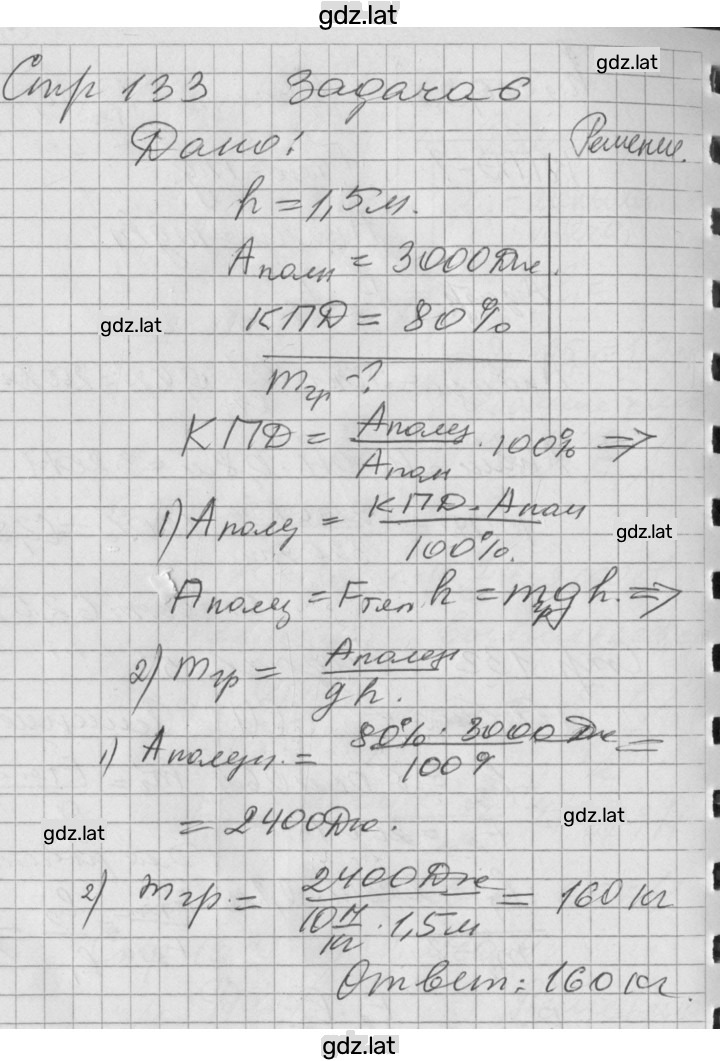 gdz.lat
gdz.lat
Стр 133 Задача 6
Дано: Решение.
h = 1,5 м.
Aполн = 3000 Дж.
gdz.lat
КПД = 80%
mгр - ?
КПД = Aполез / Aпол · 100% ⇒
1) Aполез = КПД · Aпол / 100%.
gdz.lat
Aполез = Fтяж h = mгр g h. ⇒
2) mгр = Aполезн / gh.
1) Aполезн. = 80% · 3000 Дж / 100% =
= 2400 Дж.
gdz.lat
gdz.lat
2) mгр. = 2400 Дж / 10 Н/кг · 1,5 м = 160 кг
Ответ: 160 кг.
gdz.lat